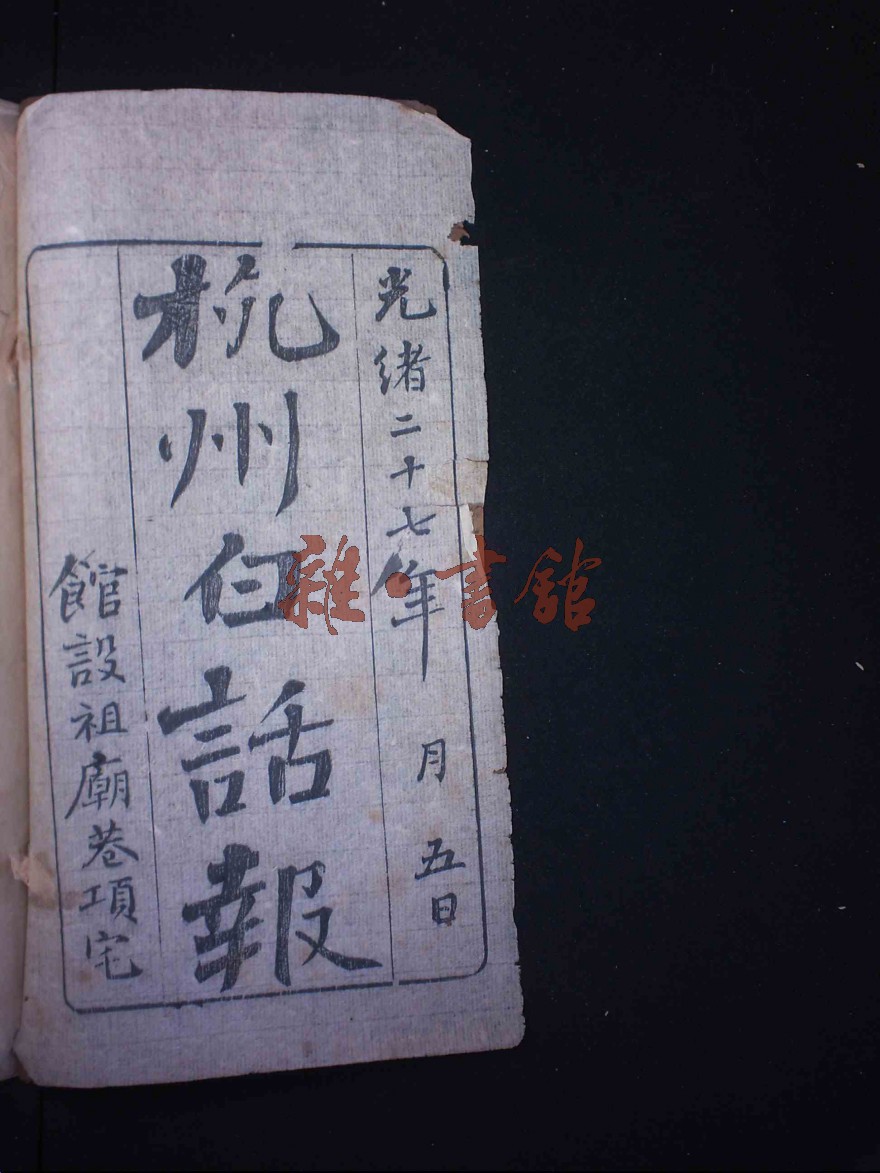 光緒二十七年 月 五日
杭州白話報
館設祖廟巷項宅
雜·書館